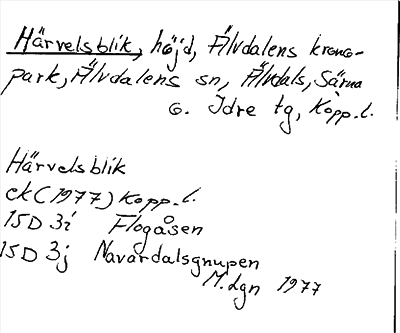 Härvelsblik, höjd, Älvdalens krono-
park, Älvdalens sn, Älvdals, Särna
o. Idre tg, Kopp. l.
Härvelsblik
ek (1977) Kopp. l.
15D 3i Flogåsen
15D 3j Navardalsgnupen
M. Lgn 1977